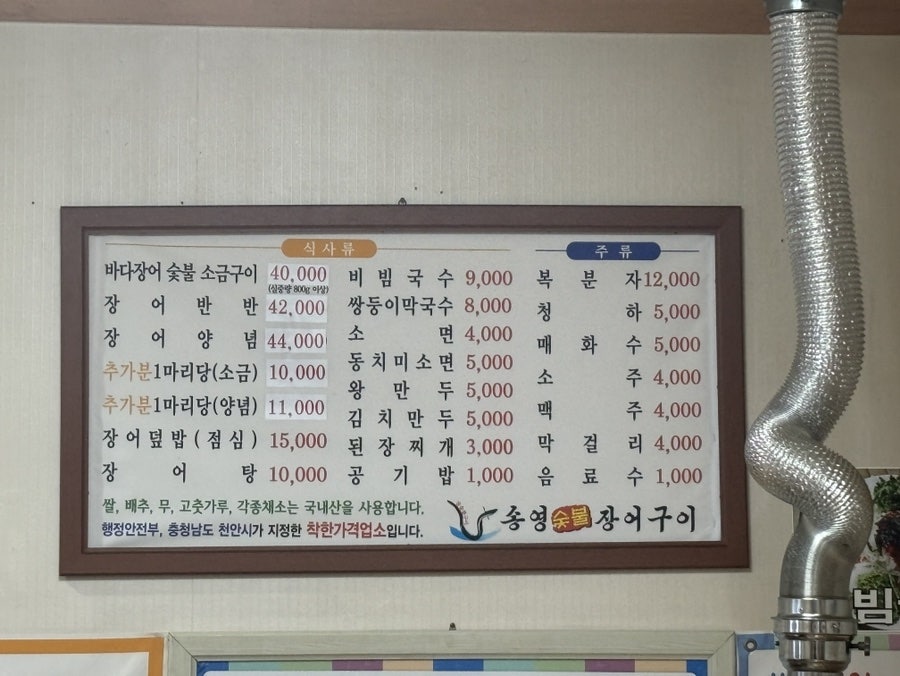 식사류
바다장어 숯불 소금구이 40,000
(실중량 800g 이상)
장어반반 42,000
장어양념 44,000
추가분1마리당(소금) 10,000
추가분1마리당(양념) 11,000
장어덮밥(점심) 15,000
장어탕 10,000
비빔국수 9,000
쌍둥이막국수 8,000
소면 4,000
동치미소면 5,000
왕만두 5,000
김치만두 5,000
된장찌개 3,000
공기밥 1,000
주류
복분자 12,000
청하 5,000
매화수 5,000
소주 4,000
맥주 4,000
막걸리 4,000
음료수 1,000
쌀, 배추, 무, 고춧가루, 각종채소는 국내산을 사용합니다.
행정안전부, 충청남도 천안시가 지정한 착한가격업소입니다.
송영숯불장어구이
빔